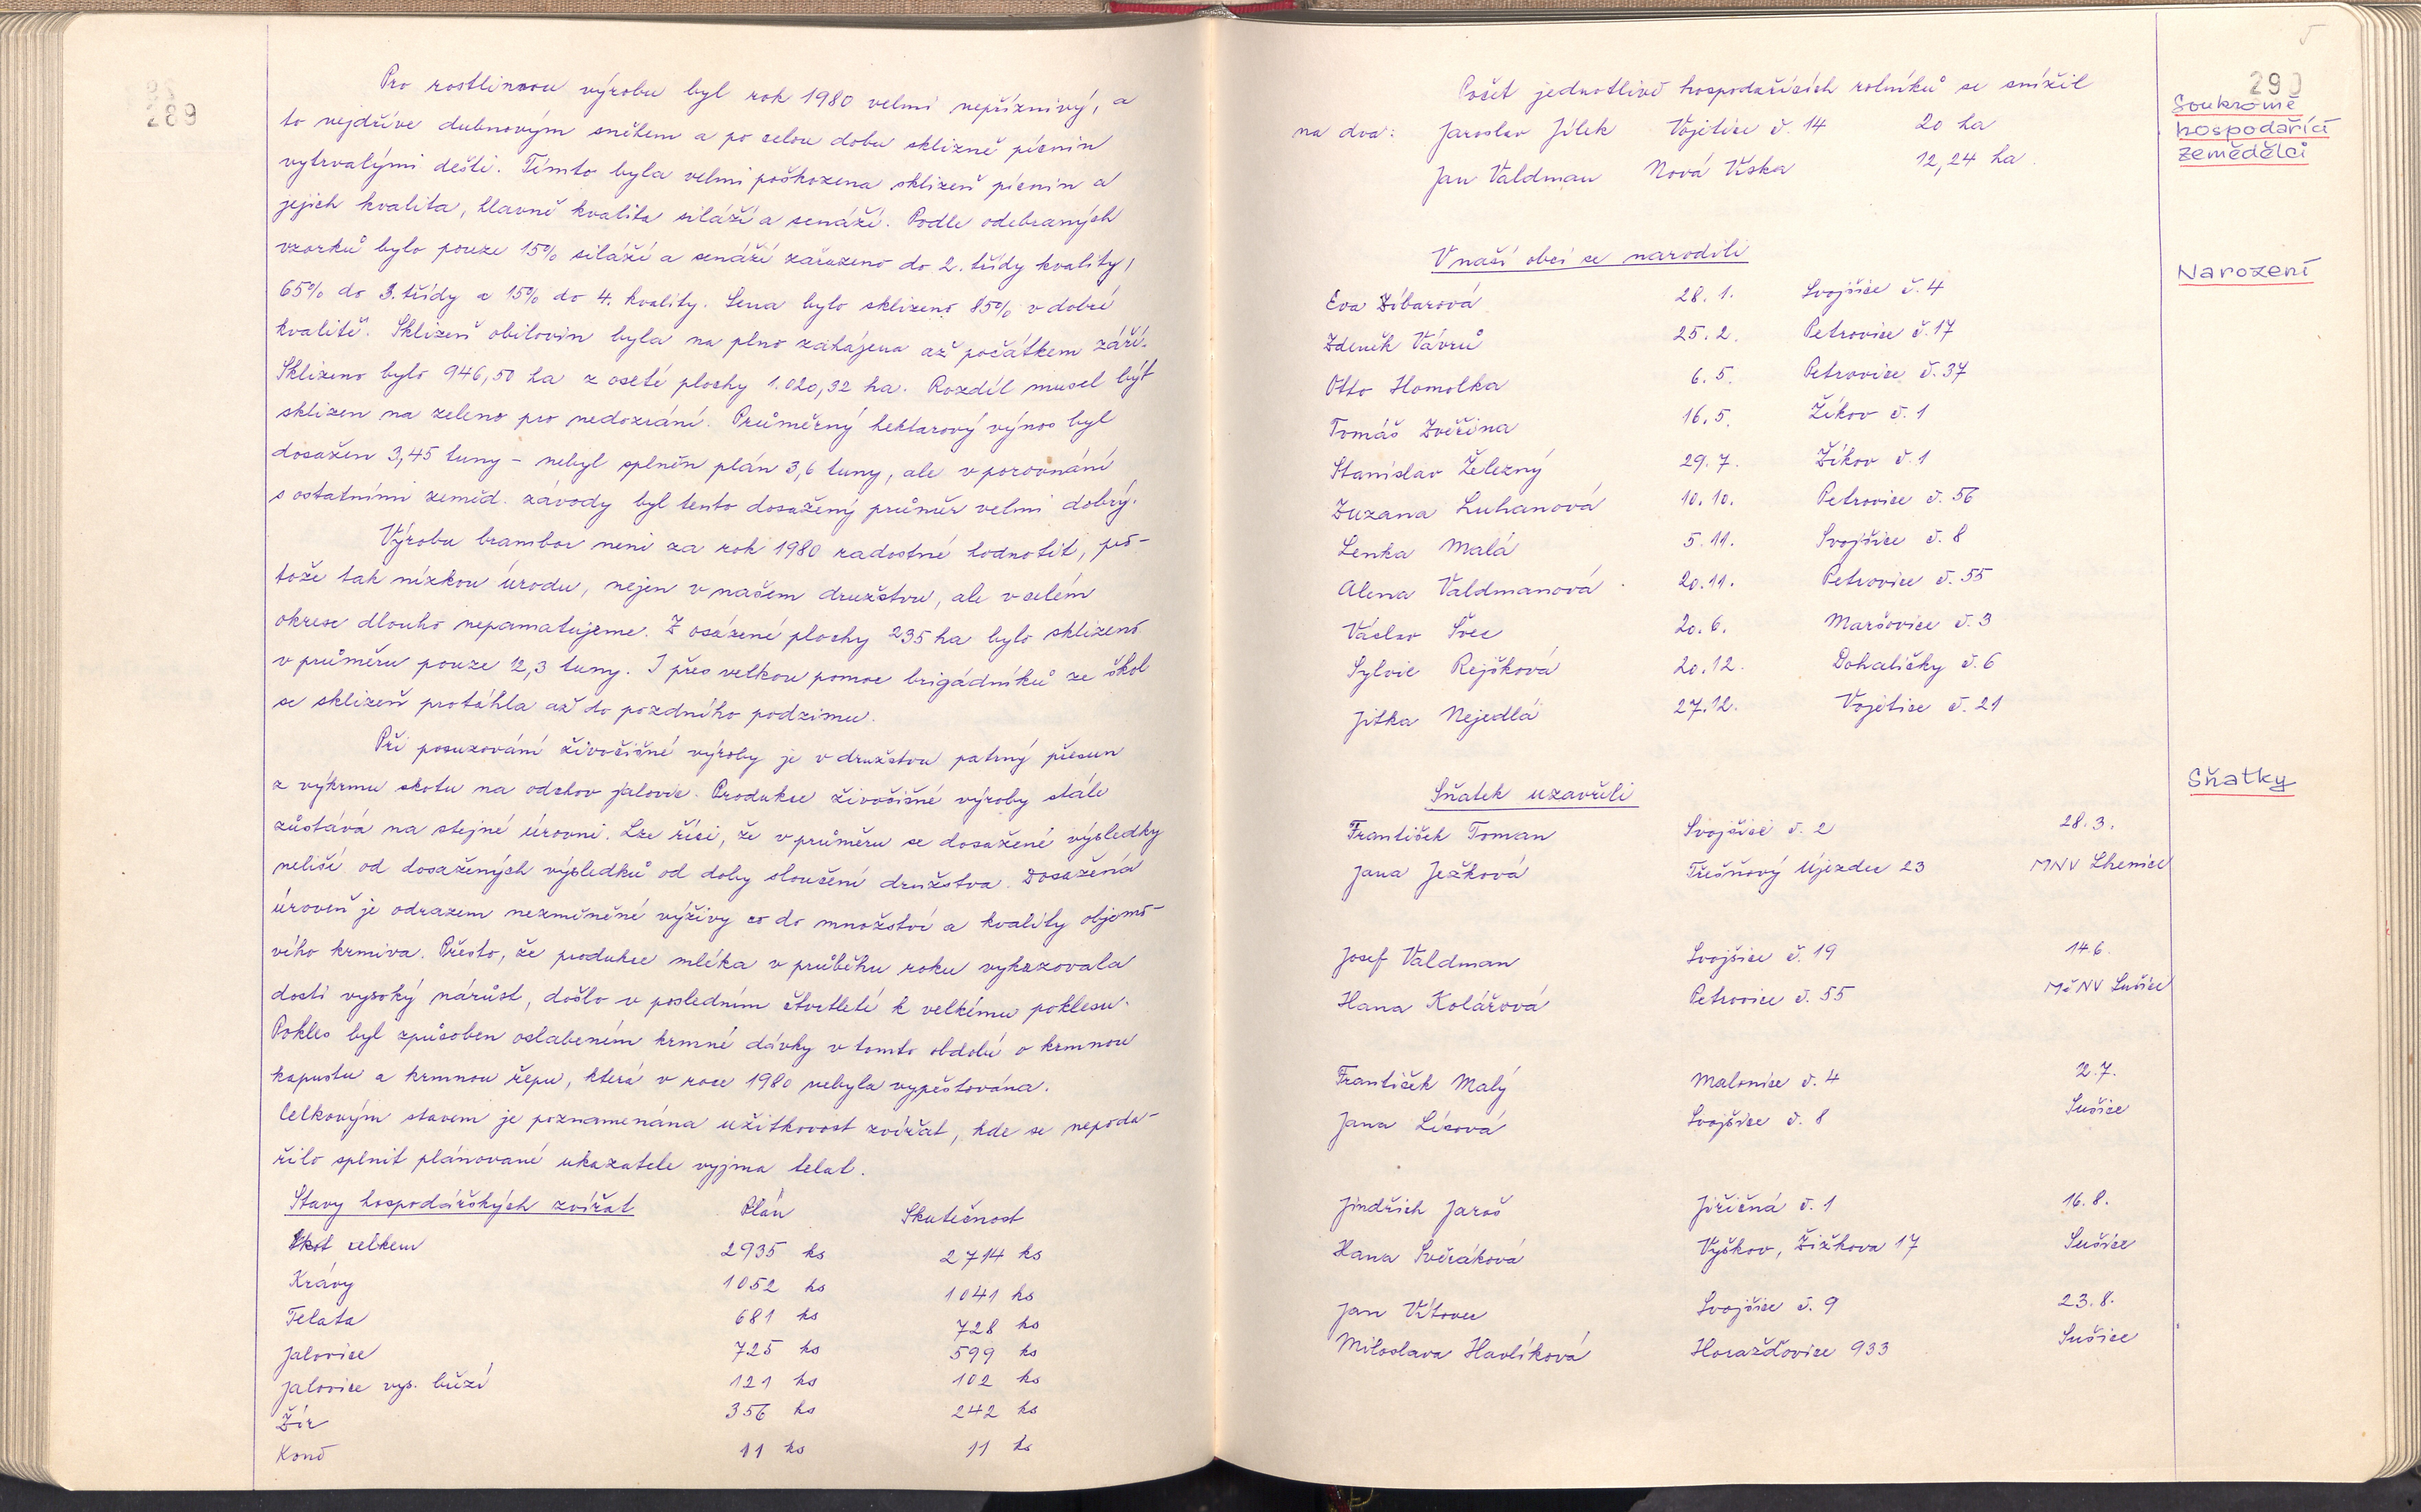 289
Pro rostlinnou výrobu byl rok 1980 velmi nepříznivý, a
to nejdříve dubnovým sněhem a po celou dobu sklizně pícnin
vytrvalými dešti. Tímto byla velmi poškozena sklizeň pícnin a
jejich kvalita, hlavně kvalita siláží a senáží. Podle odebraných
vzorků bylo pouze 15% siláží a senáží zařazeno do 2. třídy kvality,
65% do 3. třídy a 15% do 4. kvality. Sena bylo sklizeno 85% v dobré
kvalitě. Sklizeň obilovin byla na plno zahájena až počátkem září.
Sklizeno bylo 946,50 ha z oseté plochy 1.020,32 ha. Rozdíl musel být
sklizen na zeleno pro nedozrání. Průměrný hektarový výnos byl
dosažen 3,45 tuny - nebyl splněn plán 3,6 tuny, ale v porovnání
s ostatními zeměd. závody byl tento dosažený průměr velmi dobrý.
Výrobu brambor není za rok 1980 radostné hodnotit, pro-
tože tak nízkou úrodu, nejen v našem družstvu, ale v celém
okrese dlouho nepamatujeme. Z osázené plochy 235 ha bylo sklizeno
v průměru pouze 12,3 tuny. I přes velkou pomoc brigádníků ze škol
se sklizeň protáhla až do pozdního podzimu.
Při posuzování živočišné výroby je v družstvu patrný přesun
z výkrmu skotu na odchov jalovic. Produkce živočišné výroby stále
zůstává na stejné úrovni. Lze říci, že v průměru se dosažené výsledky
neliší od dosažených výsledků od doby sloučení družstva. Dosažená
úroveň je odrazem nezměněné výživy co do množství a kvality objemo-
vého krmiva. Přesto, že produkce mléka v průběhu roku vykazovala
dosti vysoký nárůst, došlo v posledním čtvrtletí k velkému poklesu.
Pokles byl způsoben oslabením krmné dávky v tomto období o krmnou
kapustu a krmnou řepu, která v roce 1980 nebyla vypěstována.
Celkovým stavem je poznamenána užitkovost zvířat, kde se nepoda-
řilo splnit plánované ukazatele vyjma telat.
Stavy hospodářských zvířat Plán Skutečnost
Skot celkem 2935 ks 2714 ks
Krávy 1052 ks 1041 ks
Telata 681 ks 728 ks
Jalovice 725 ks 599 ks
Jalovice vys. březí 121 ks 102 ks
Žír 356 ks 242 ks
Koně 11 ks 11 ks
290
Soukromě
hospodařící
zemědělci
Počet jednotlivě hospodařících rolníků se snížil
na dva: Jaroslav Jílek Vojetice č. 14 20 ha
Jan Valdman Nová Víska 12,24 ha.
Narození
V naší obci se narodili
Eva Zíbarová 28. 1. Svojšice č. 4
Zdeněk Vávrů 25. 2. Petrovice č. 17
Otto Homolka 6. 5. Petrovice č. 37
Tomáš Zvěřina 16. 5. Žíkov č. 1
Stanislav Železný 29. 7. Žíkov č. 1
Zuzana Luhanová 10. 10. Petrovice č. 56
Lenka Malá 5. 11. Svojšice č. 8
Alena Valdmanová 20. 11. Petrovice č. 55
Václav Švec 20. 6. Maršovice č. 3
Sylvie Rejšková 20. 12. Dohaličky č. 6
Jitka Nejedlá 27. 12. Vojetice č. 21
Sňatky
Sňatek uzavřeli
František Toman Svojšice č. 2 28. 3.
Jana Ježková Třešňový Újezdec 23 MNV Lhenice
Josef Valdman Svojšice č. 19 14. 6.
Hana Kolářová Petrovice č. 55 MěNV Sušice
František Malý Malonice č. 4 2. 7.
Jana Lísová Svojšice č. 8 Sušice
Jindřich Jaroš Jiřičná č. 1 16. 8.
Hana Svěráková Vyškov, Žižkova 17 Sušice
Jan Vítovec Svojšice č. 9 23. 8.
Miloslava Havlíková Horažďovice 933 Sušice